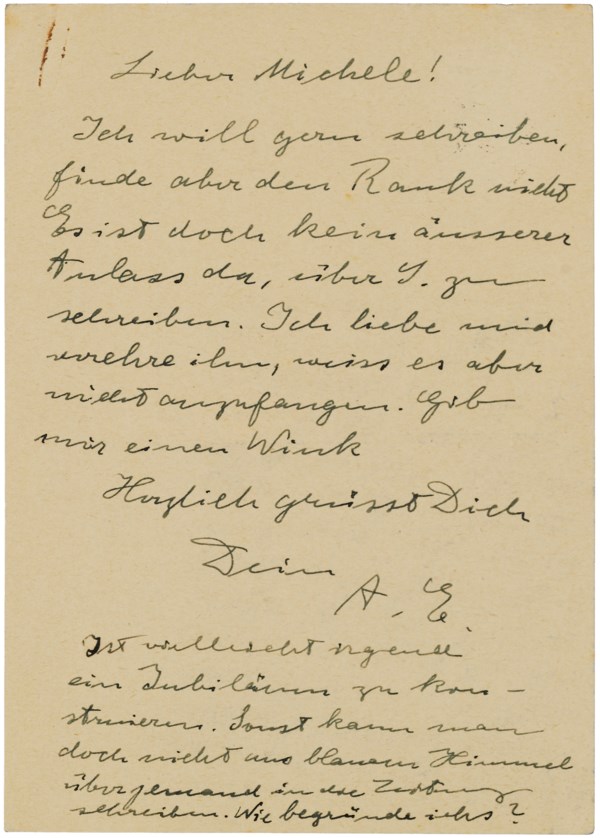 Lieber Michele!
Ich will gern schreiben,
finde aber den Rank nicht
Es ist doch kein äusserer
Anlass da, über S. zu
schreiben. Ich liebe und
verehre ihn, weiss es aber
nicht anzufangen. Gib
mir einen Wink
Herzlich grüsst Dich
Dein
A. E.
Ist vielleicht irgend
ein Jubiläum zu kon-
struieren. Sonst kann man
doch nicht aus blauem Himmel
über jemand in die Zeitung
schreiben. Wie begründe ichs?